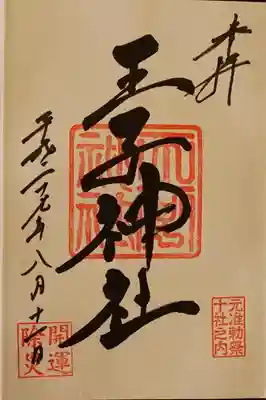 奉拝
元准勅祭
十社之内
王子神社
平成二十七年八月十一日
開運
除災